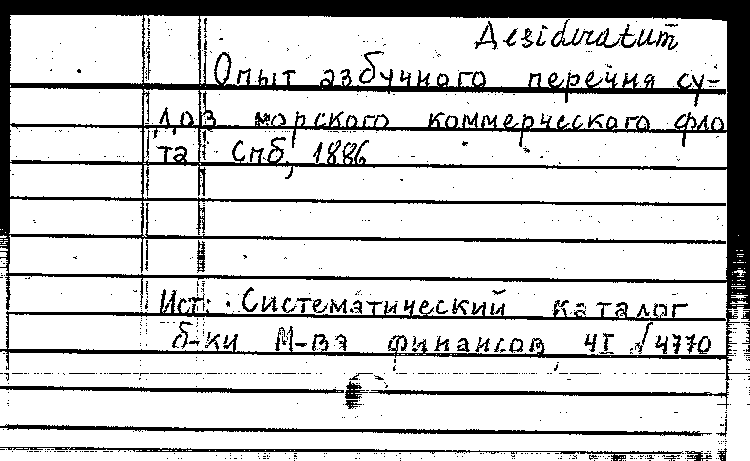 Desideratum
Опыт азбучного перечня су-
дов морского коммерческого фло
та Спб, 1886
Ист: Систематический каталог
б-ки М-ва финансов, ч I √4770